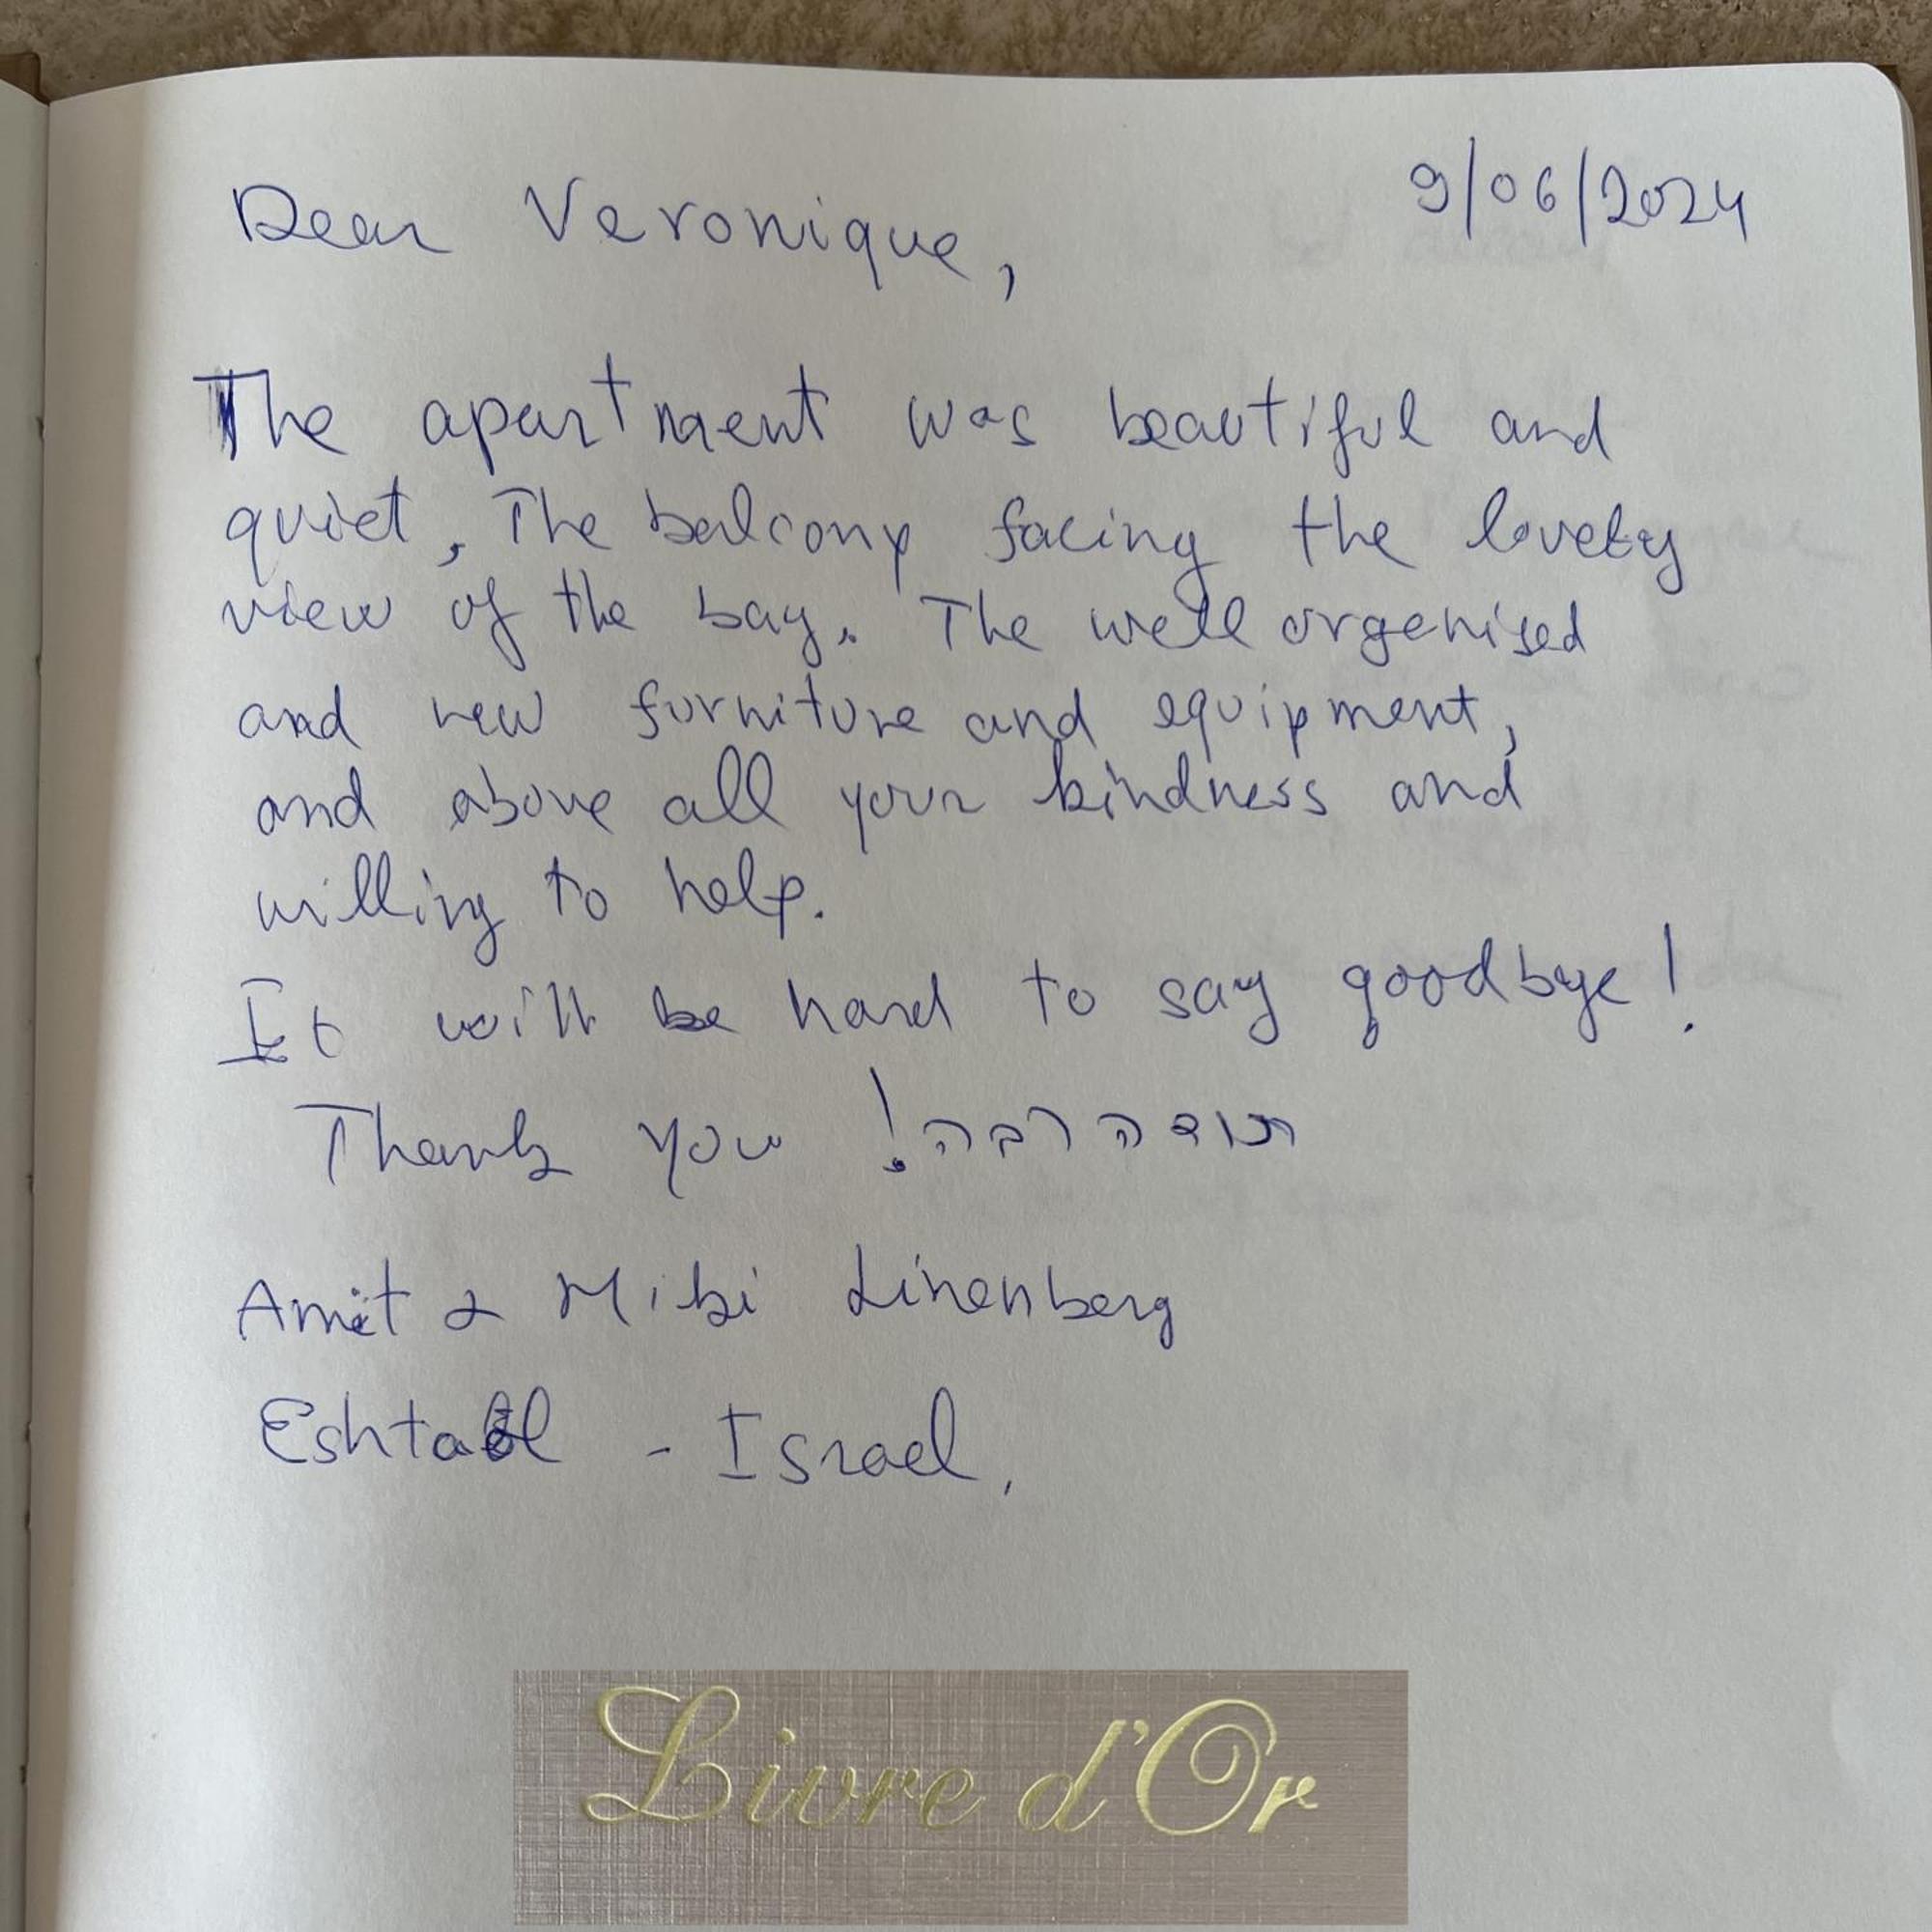 9/06/2024
Dear Veronique,
The apartment was beautiful and
quiet, The balcony facing the lovely
view of the bay. The well orgenised
and new furniture and equipment,
and above all your kindness and
willing to help.
It will be hard to say goodbye!
Thank you ! תודה רבה
Amit & Mibi Linenberg
Eshtaol - Israel.
Livre d'Or